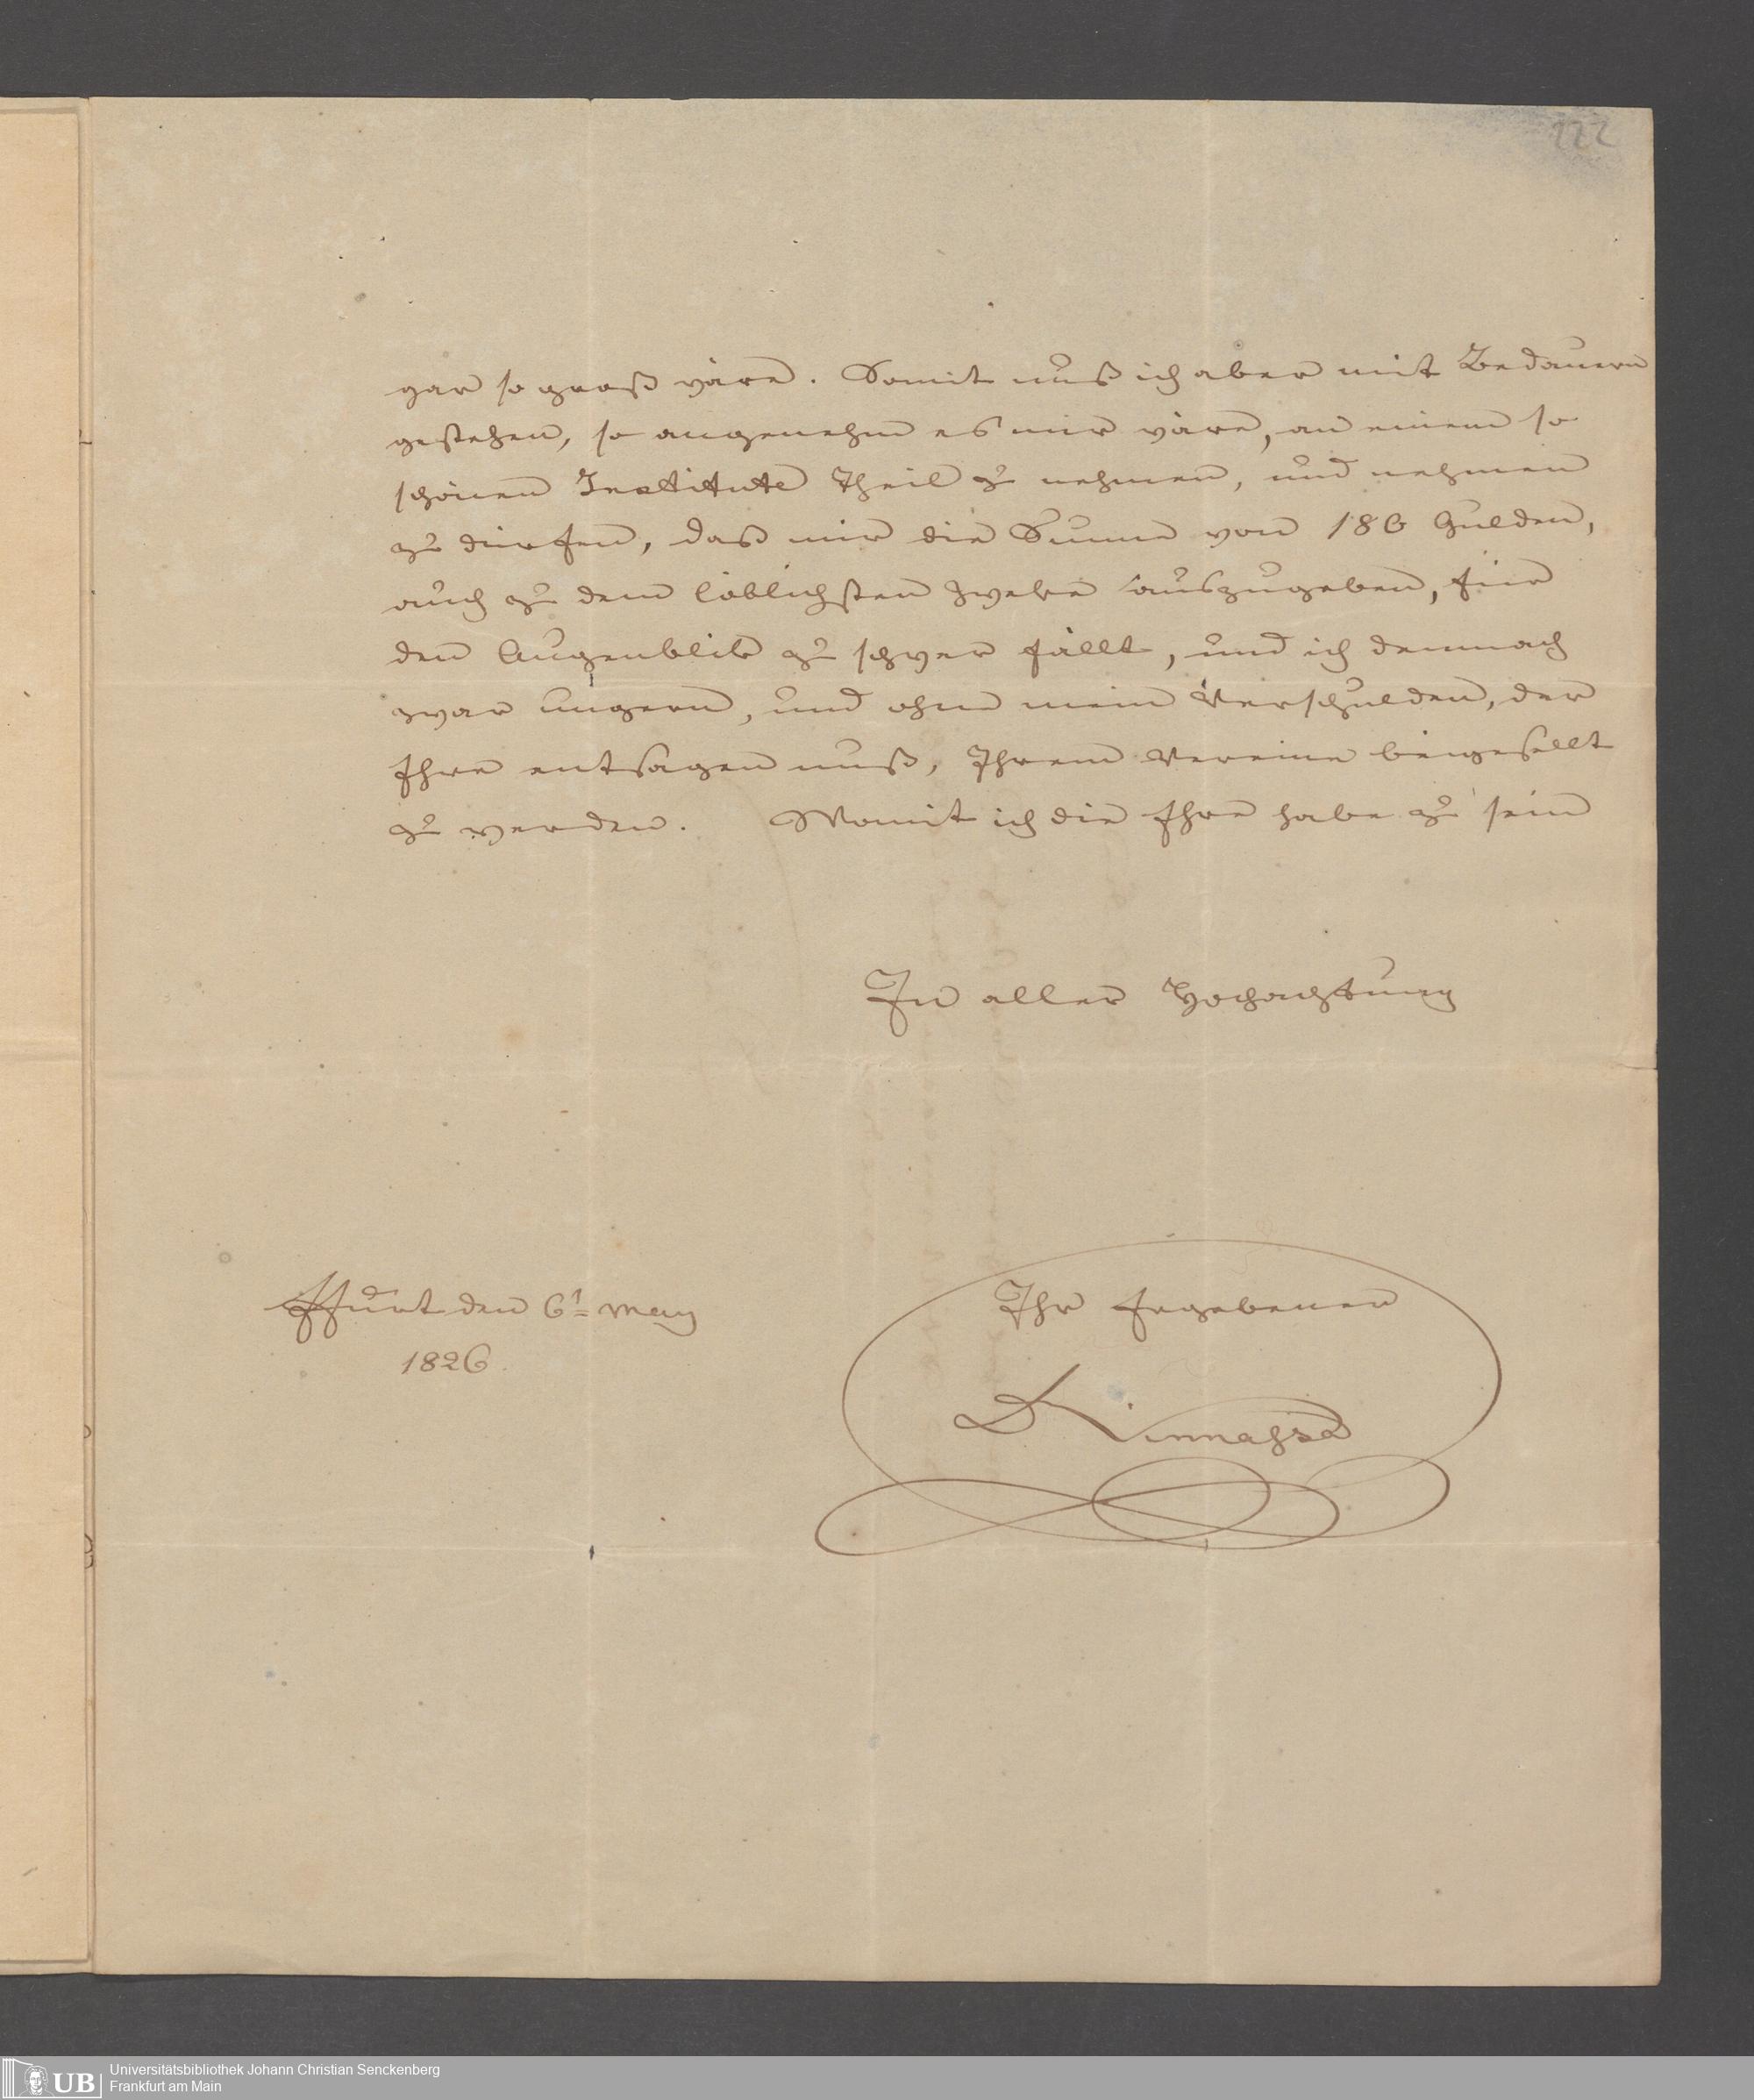 222
gar so groß wäre. Somit muß ich aber mit Bedauern
gestehen, so angenehm es mir wäre, an einem so
schönen Institute Theil zu nehmen, und nehmen
zu dürfen, daß mir die Summe von 186 Gulden,
auch zu dem löblichsten Zweke auszugeben, für
den Augenblik zu schwer fällt, und ich demnach
zwar ungern, und ohne mein Verschulden, der
Ehre entsagen muß, Ihrem Vereine beigesellt
zu werden. Womit ich die Ehre habe zu sein
In aller Hochachtung
Ffurt den 6t May
1826.
Ihr Ergebener
Universitätsbibliothek Johann Christian Senckenberg
Frankfurt am Main
UB